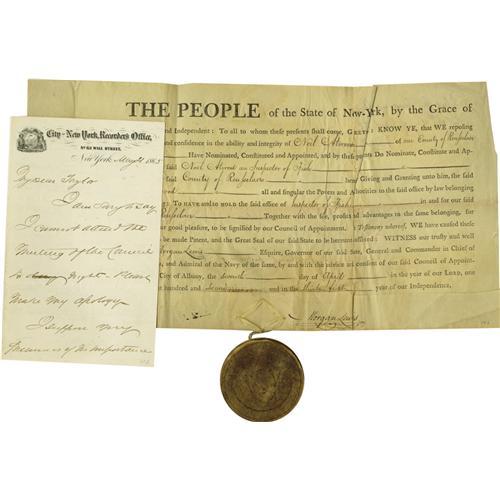 THE PEOPLE of the State of New-York, by the Grace of
and Independent: To all to whom these presents shall come, GREETING: KNOW YE, that WE reposing
and confidence in the ability and integrity of Neil of our County of Rensselaer
Have Nominated, Constituted and Appointed, and by these presents Do Nominate, Constitute and Ap-
said Neil an Inspector of Fish
said County of Rensselaer hereby Giving and Granting unto him, the said
all and singular the Powers and Authorities to the said office by law belonging
To HAVE and to HOLD the said office of Inspector of Fish in and for our said
Rensselaer Together with the fees, profits and advantages to the same belonging, for
our good pleasure, to be signified by our Council of Appointment. In Testimony whereof, WE have caused these
be made Patent, and the Great Seal of our said State to be hereunto affixed: WITNESS our trusty and well
Morgan Lewis Esquire, Governor of our said State, General and Commander in Chief of
and Admiral of the Navy of the same, by and with the advice and consent of our said Council of Appoint-
City of Albany, the seventh day of April in the year of our LORD, one
hundred and and in the Thirty first year of our Independence.
Morgan Lewis
City of New York, Recorder's Office,
No. 25 WALL STREET.
New York May 21 1863
My dear Taylor
I am sorry to say
I cannot attend the
Meeting of the
to night. Please
make my apology
I very